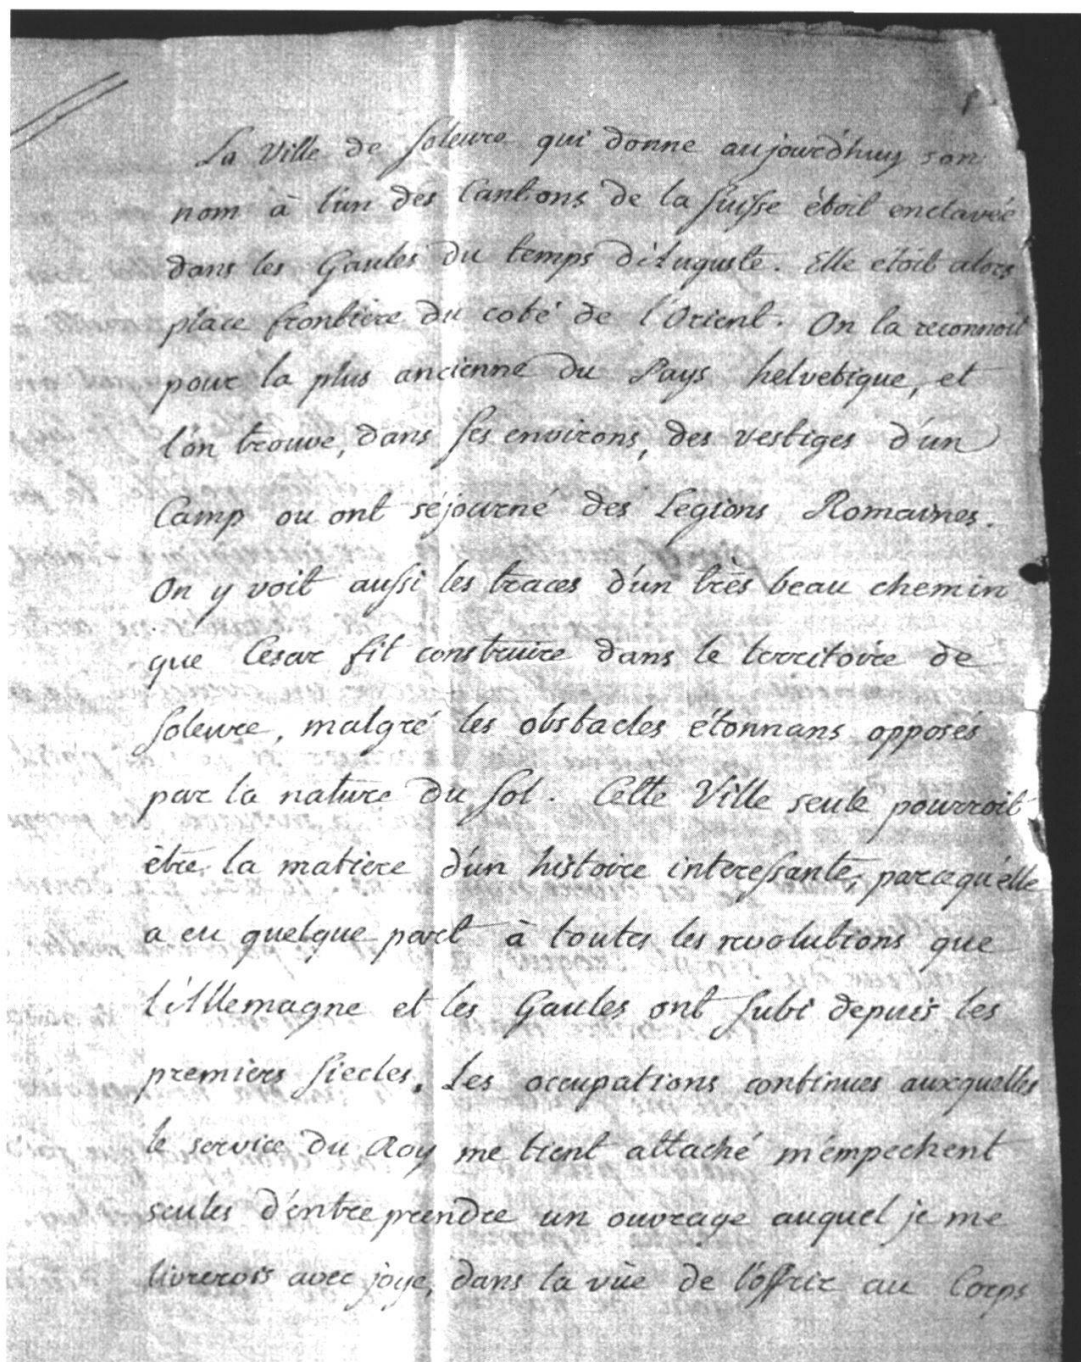 La Ville de Soleure qui donne aujourd'huy son
nom à l'un des Cantons de la Suisse étoit enclavée
dans les Gaules du temps d'Auguste. Elle étoit alors
place frontière du coté de l'Orient. On la reconnoit
pour la plus ancienne du Pays helvetique, et
l'on trouve, dans ses environs, des vestiges d'un
Camp ou ont séjourné des Legions Romaines.
On y voit aussi les traces d'un très beau chemin
que Cesar fit construire dans le territoire de
Soleure, malgré les obstacles étonnans opposés
par la nature du sol. Cette Ville seule pourroit
être la matière d'un histoire interessante, parcequ'elle
a eu quelque part à toutes les revolutions que
l'Allemagne et les Gaules ont subi depuis les
premiers siecles. Les occupations continues auxquelles
le service du Roy me tient attaché m'empechent
seules d'entreprendre un ouvrage auquel je me
livrerois avec joye, dans la vüe de l'offrir au Corps